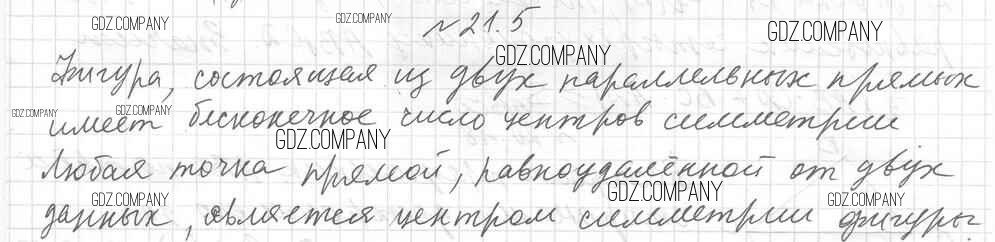 GDZ.COMPANY GDZ.COMPANY № 21.5 GDZ.COMPANY
GDZ.COMPANY
Фигура, состоящая из двух параллельных прямых
GDZ.COMPANY GDZ.COMPANY
имеет бесконечное число центров симметрии
GDZ.COMPANY
Любая точка прямой, равноудалённой от двух
GDZ.COMPANY GDZ.COMPANY GDZ.COMPANY
данных, является центром симметрии фигуры.